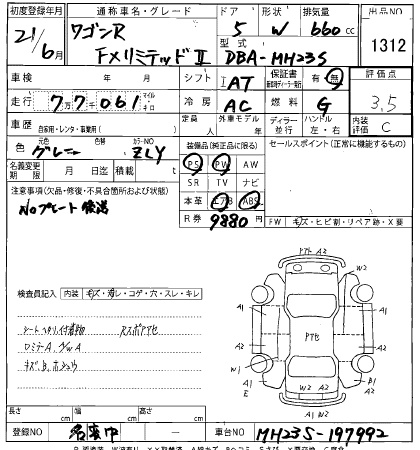 初度登録年月 通称車名・グレード ドア 形状 排気量 出品NO
21/6月 ワゴンR FXリミテッドⅡ 5 W 660cc 1312
型式 DBA-MH23S
車検 年 月 シフト IAT 保証書 有・無 評価点 3.5
走行 77,061 マイル・キロ 冷房 AC 燃料 G 内装 C
車歴 自家用・レンタ・事業用( ) 定員 人 外車モデル 年 ディーラー 並行 ハンドル 左・右
色 グレー 元色 色替 カラーNO ZLY 装備品(純正品に限る) セールスポイント(正常に機能するもの)
名義変更期限 月 日 積載 t PS PW AW
SR TV ナビ
注意事項(欠品・修復・不具合箇所および状態) 本革 エアB ABS
NOプレート後送 R券 9880円
FW キズ・ヒビ割・リペア跡・X要
検査員記入 内装 キズ・汚レ・コゲ・穴・スレ・キレ
シートヘタリ,付着物 RスポアセA
ロミラーA
キズ,B,ホシュウ
アトA A2
W2
A1 A1
W1 Pアセ
A1 E B1 A2
W2
A1 W2
長さ cm 幅 cm 高さ cm
登録NO 名変中 車台NO MH23S-197992